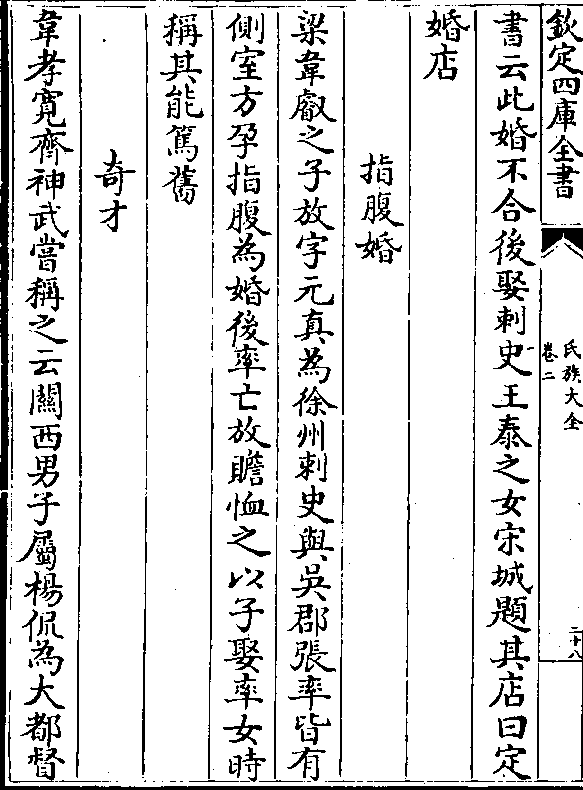 欽定四庫全書
氏族大全
卷二
二十八
書云此婚不合後娶刺史王泰之女宋城題其店曰定
婚店
指腹婚
梁韋叡之子放字元真為徐州刺史與吳郡張率皆有
側室方孕指腹為婚後率亡放贍恤之以子娶率女時
稱其能篤舊
奇才
韋孝寛齊神武嘗稱之云關西男子屬楊侃為大都督